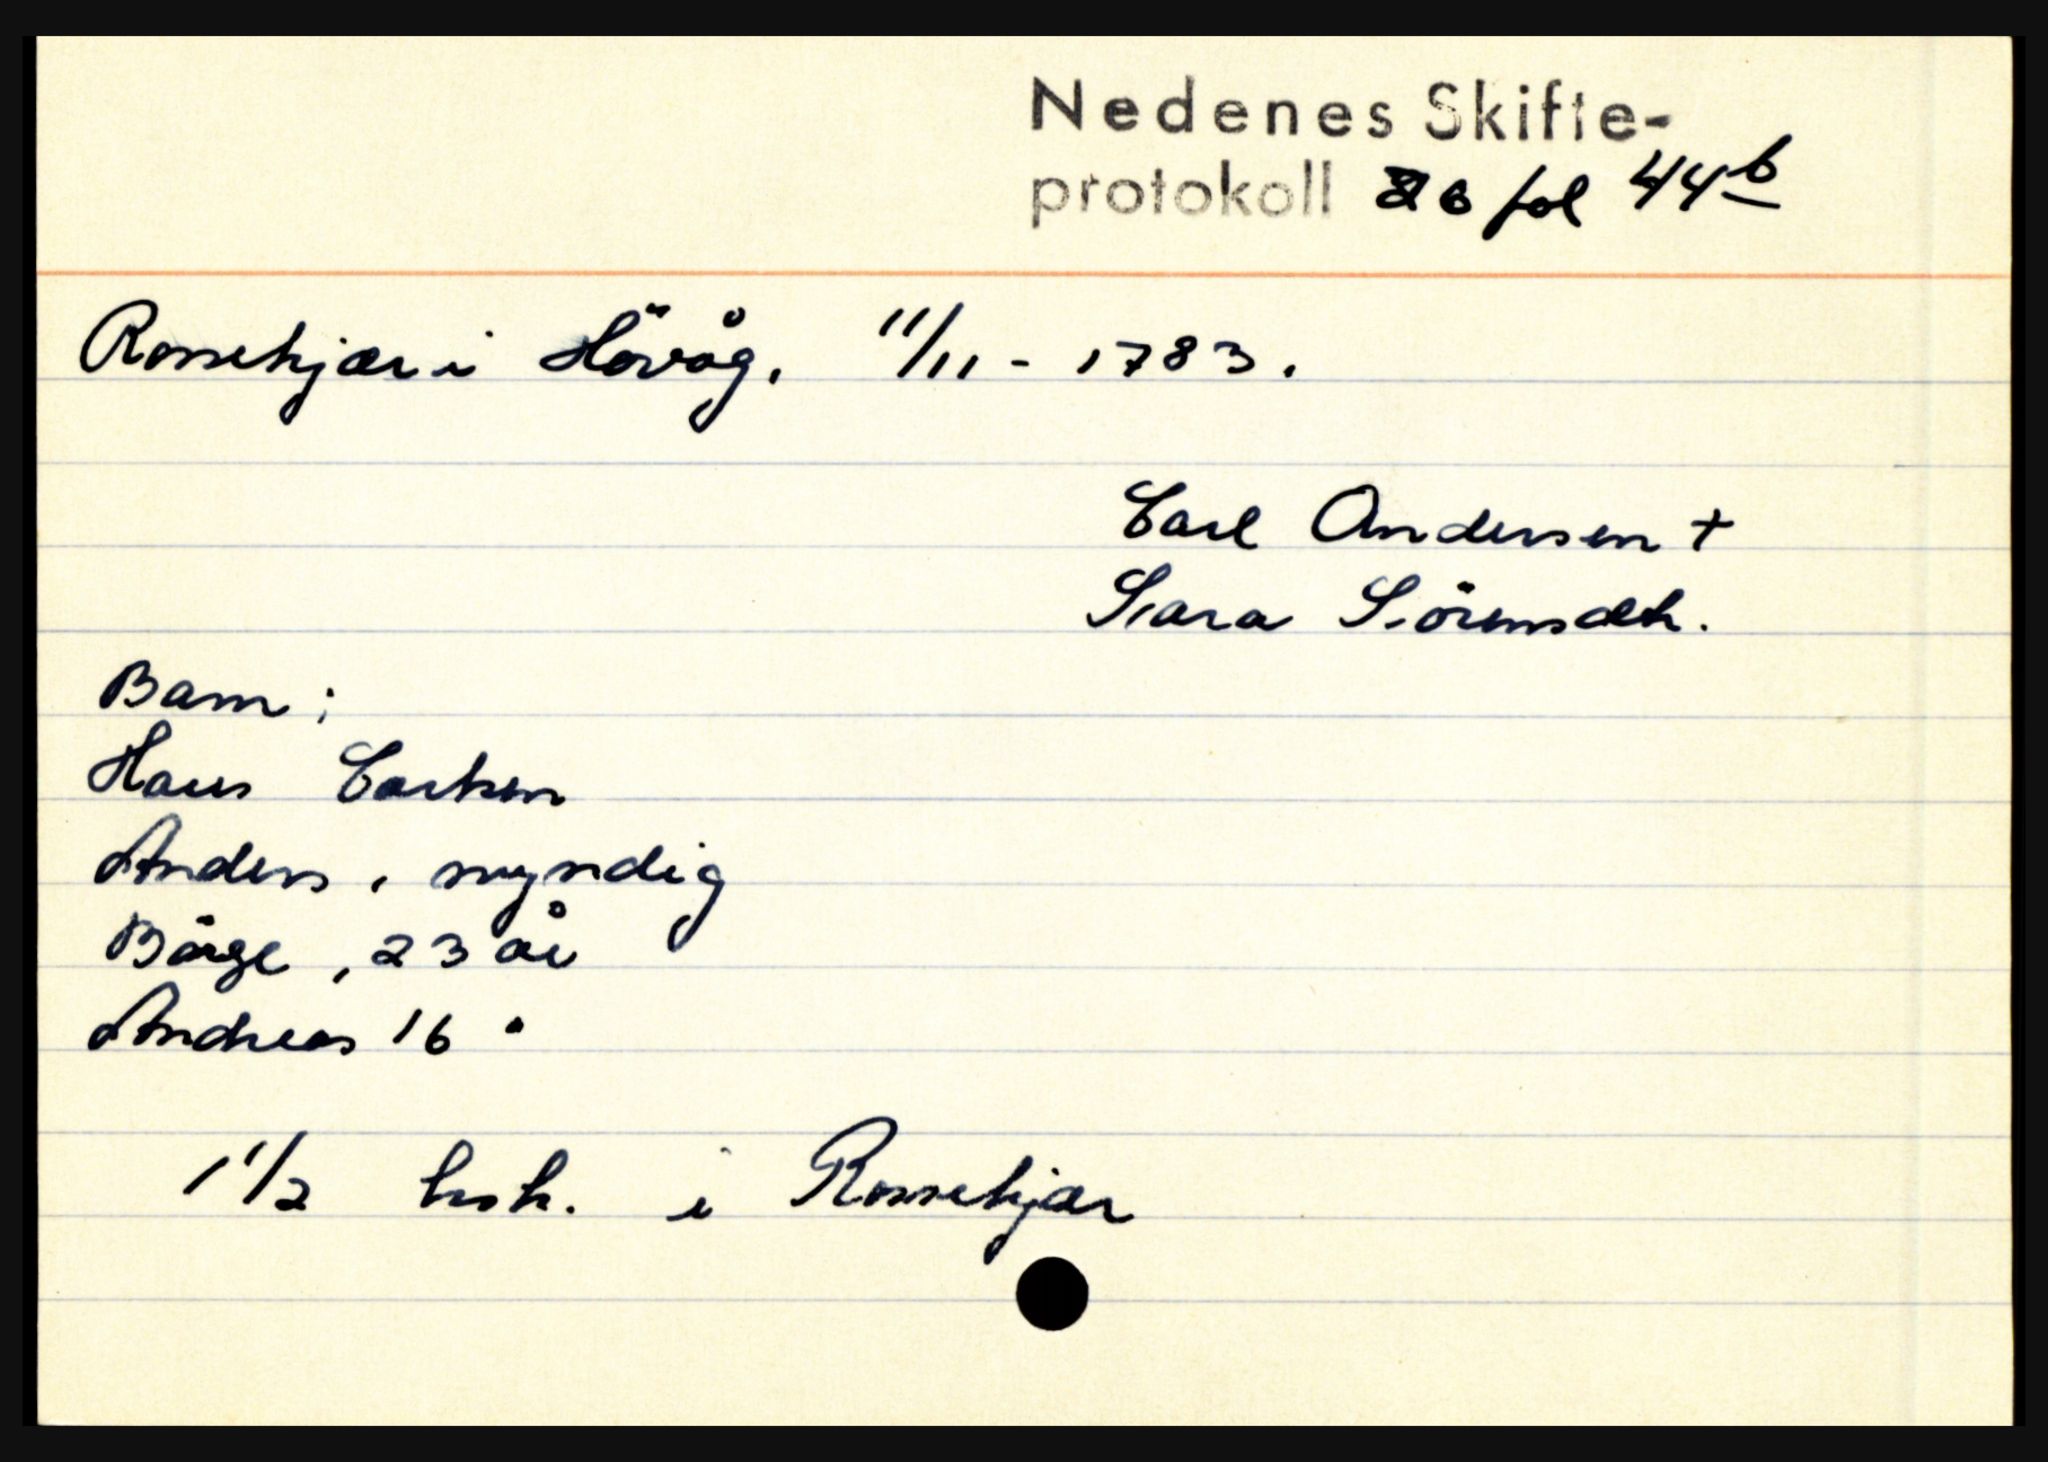 Nedenes Skifte-
protokoll 26 fol 44b
Rossekjær i Hövåg. 11/11 - 1783.
Carl Andersen +
Sara Sörensdtr.
Barn:
Hans Carlsen
Anders, myndig
Börge, 23 år
Andreas 16 "
1 1/2 ksk. i Rossekjær